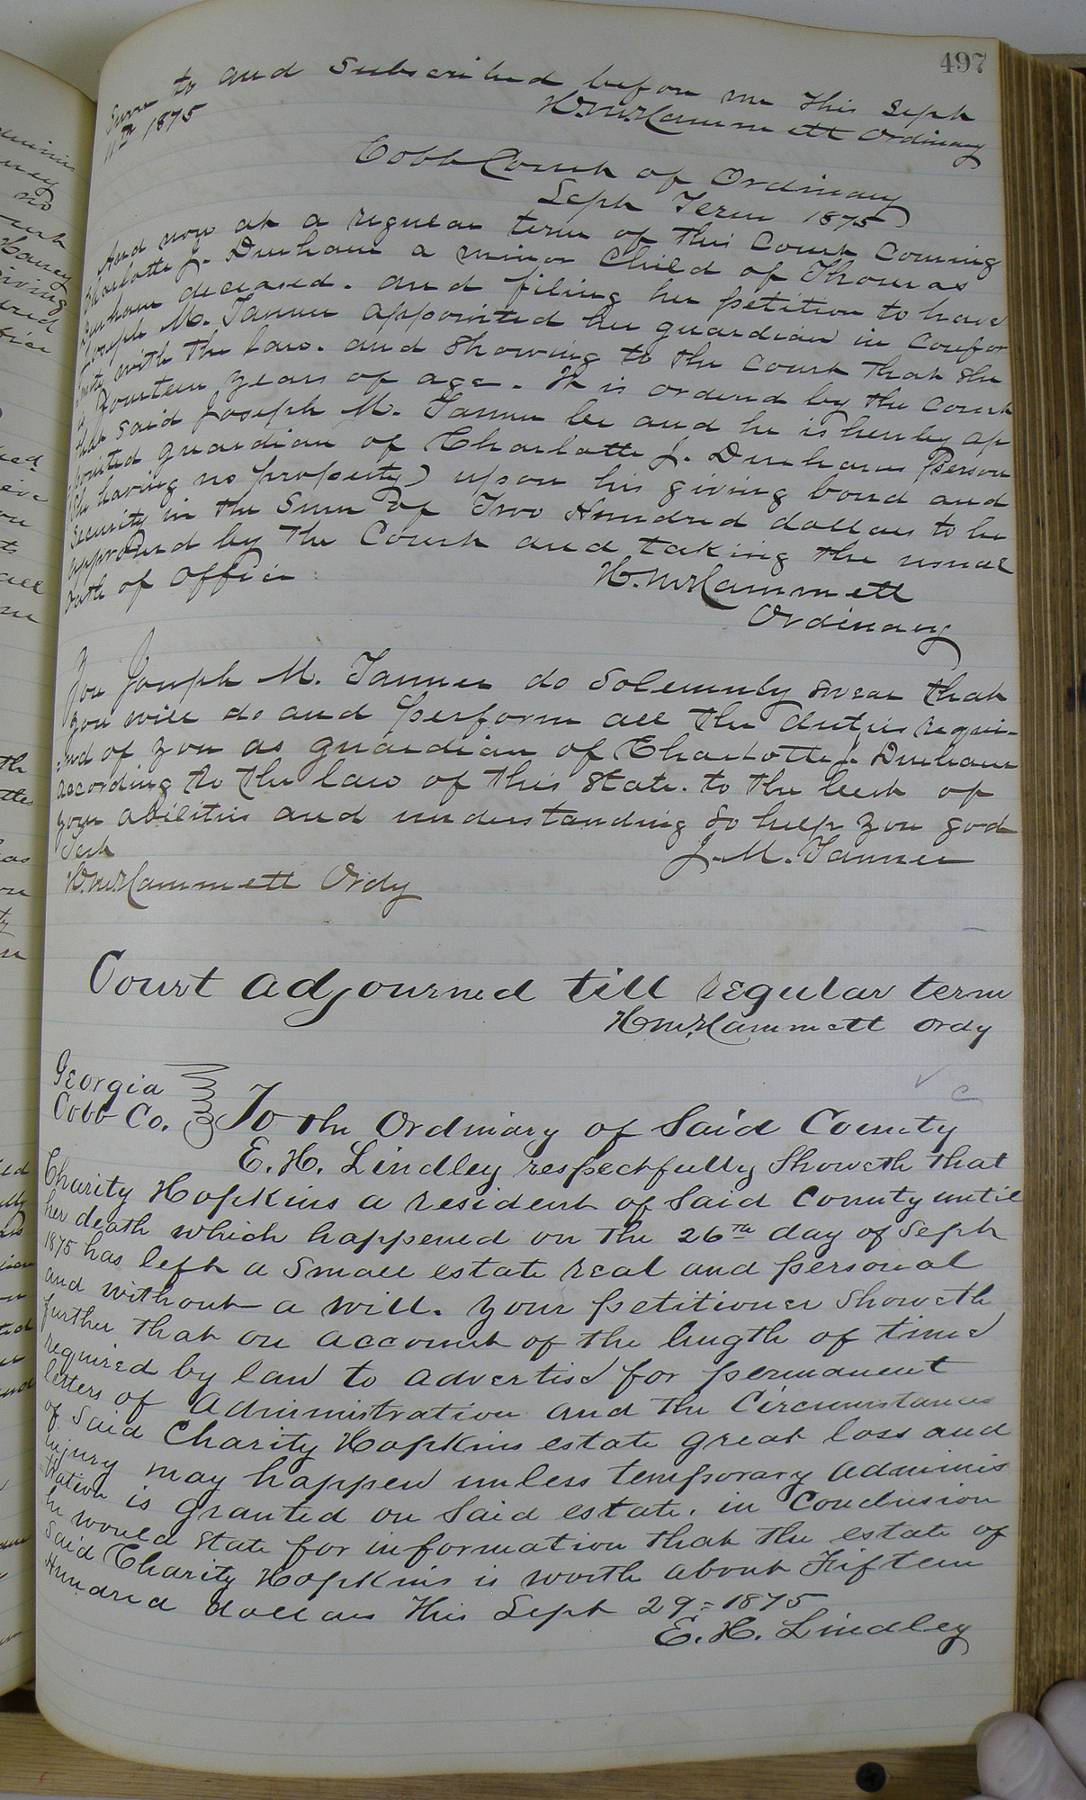 497
Sworn to and subscribed before me this Sept
11th 1875
H.M. Hammett Ordinary
Cobb Court of Ordinary
Sept Term 1875
And now at a regular term of this Court Coming
Charlotte J. Dunham a minor Child of Thomas
Dunham deceased. and filing her petition to have
Joseph M. Tanner appointed her guardian in Confor
mity with the law. and showing to the Court that she
is Fourteen years of age. It is ordered by the Court
that said Joseph M. Tanner be and he is hereby ap
pointed guardian of Charlotte J. Dunhams Person
(she having no property) upon his giving bond and
security in the Sum of Two Hundred dollars to be
approved by the Court and taking the usual
Oath of Office
H.M. Hammett
Ordinary
You Joseph M. Tanner do Solemnly swear that
you will do and perform all the duties requi-
red of you as guardian of Charlotte J. Dunham
according to the law of this State. to the best of
your abilities and understanding So help you god
Test
J. M. Tanner
H.M. Hammett Ordy
Court adjourned till regular term
H.M. Hammett Ordy
Georgia
Cobb Co. To the Ordinary of Said County
E. H. Lindley respectfully Showeth that
Charity Hopkins a resident of Said County until
her death which happened on the 26th day of Sept
1875 has left a Small estate real and personal
and without a will. Your petitioner Showeth
further that on account of the length of time
required by law to advertise for permanent
letters of Administration and the Circumstances
of Said Charity Hopkins estate great loss and
injury may happen unless temporary Adminis
tration is granted on Said estate. in Conclusion
he would State for information that the estate of
Said Charity Hopkins is worth about Fifteen
Hundred dollars this Sept 29=1875
E. H. Lindley